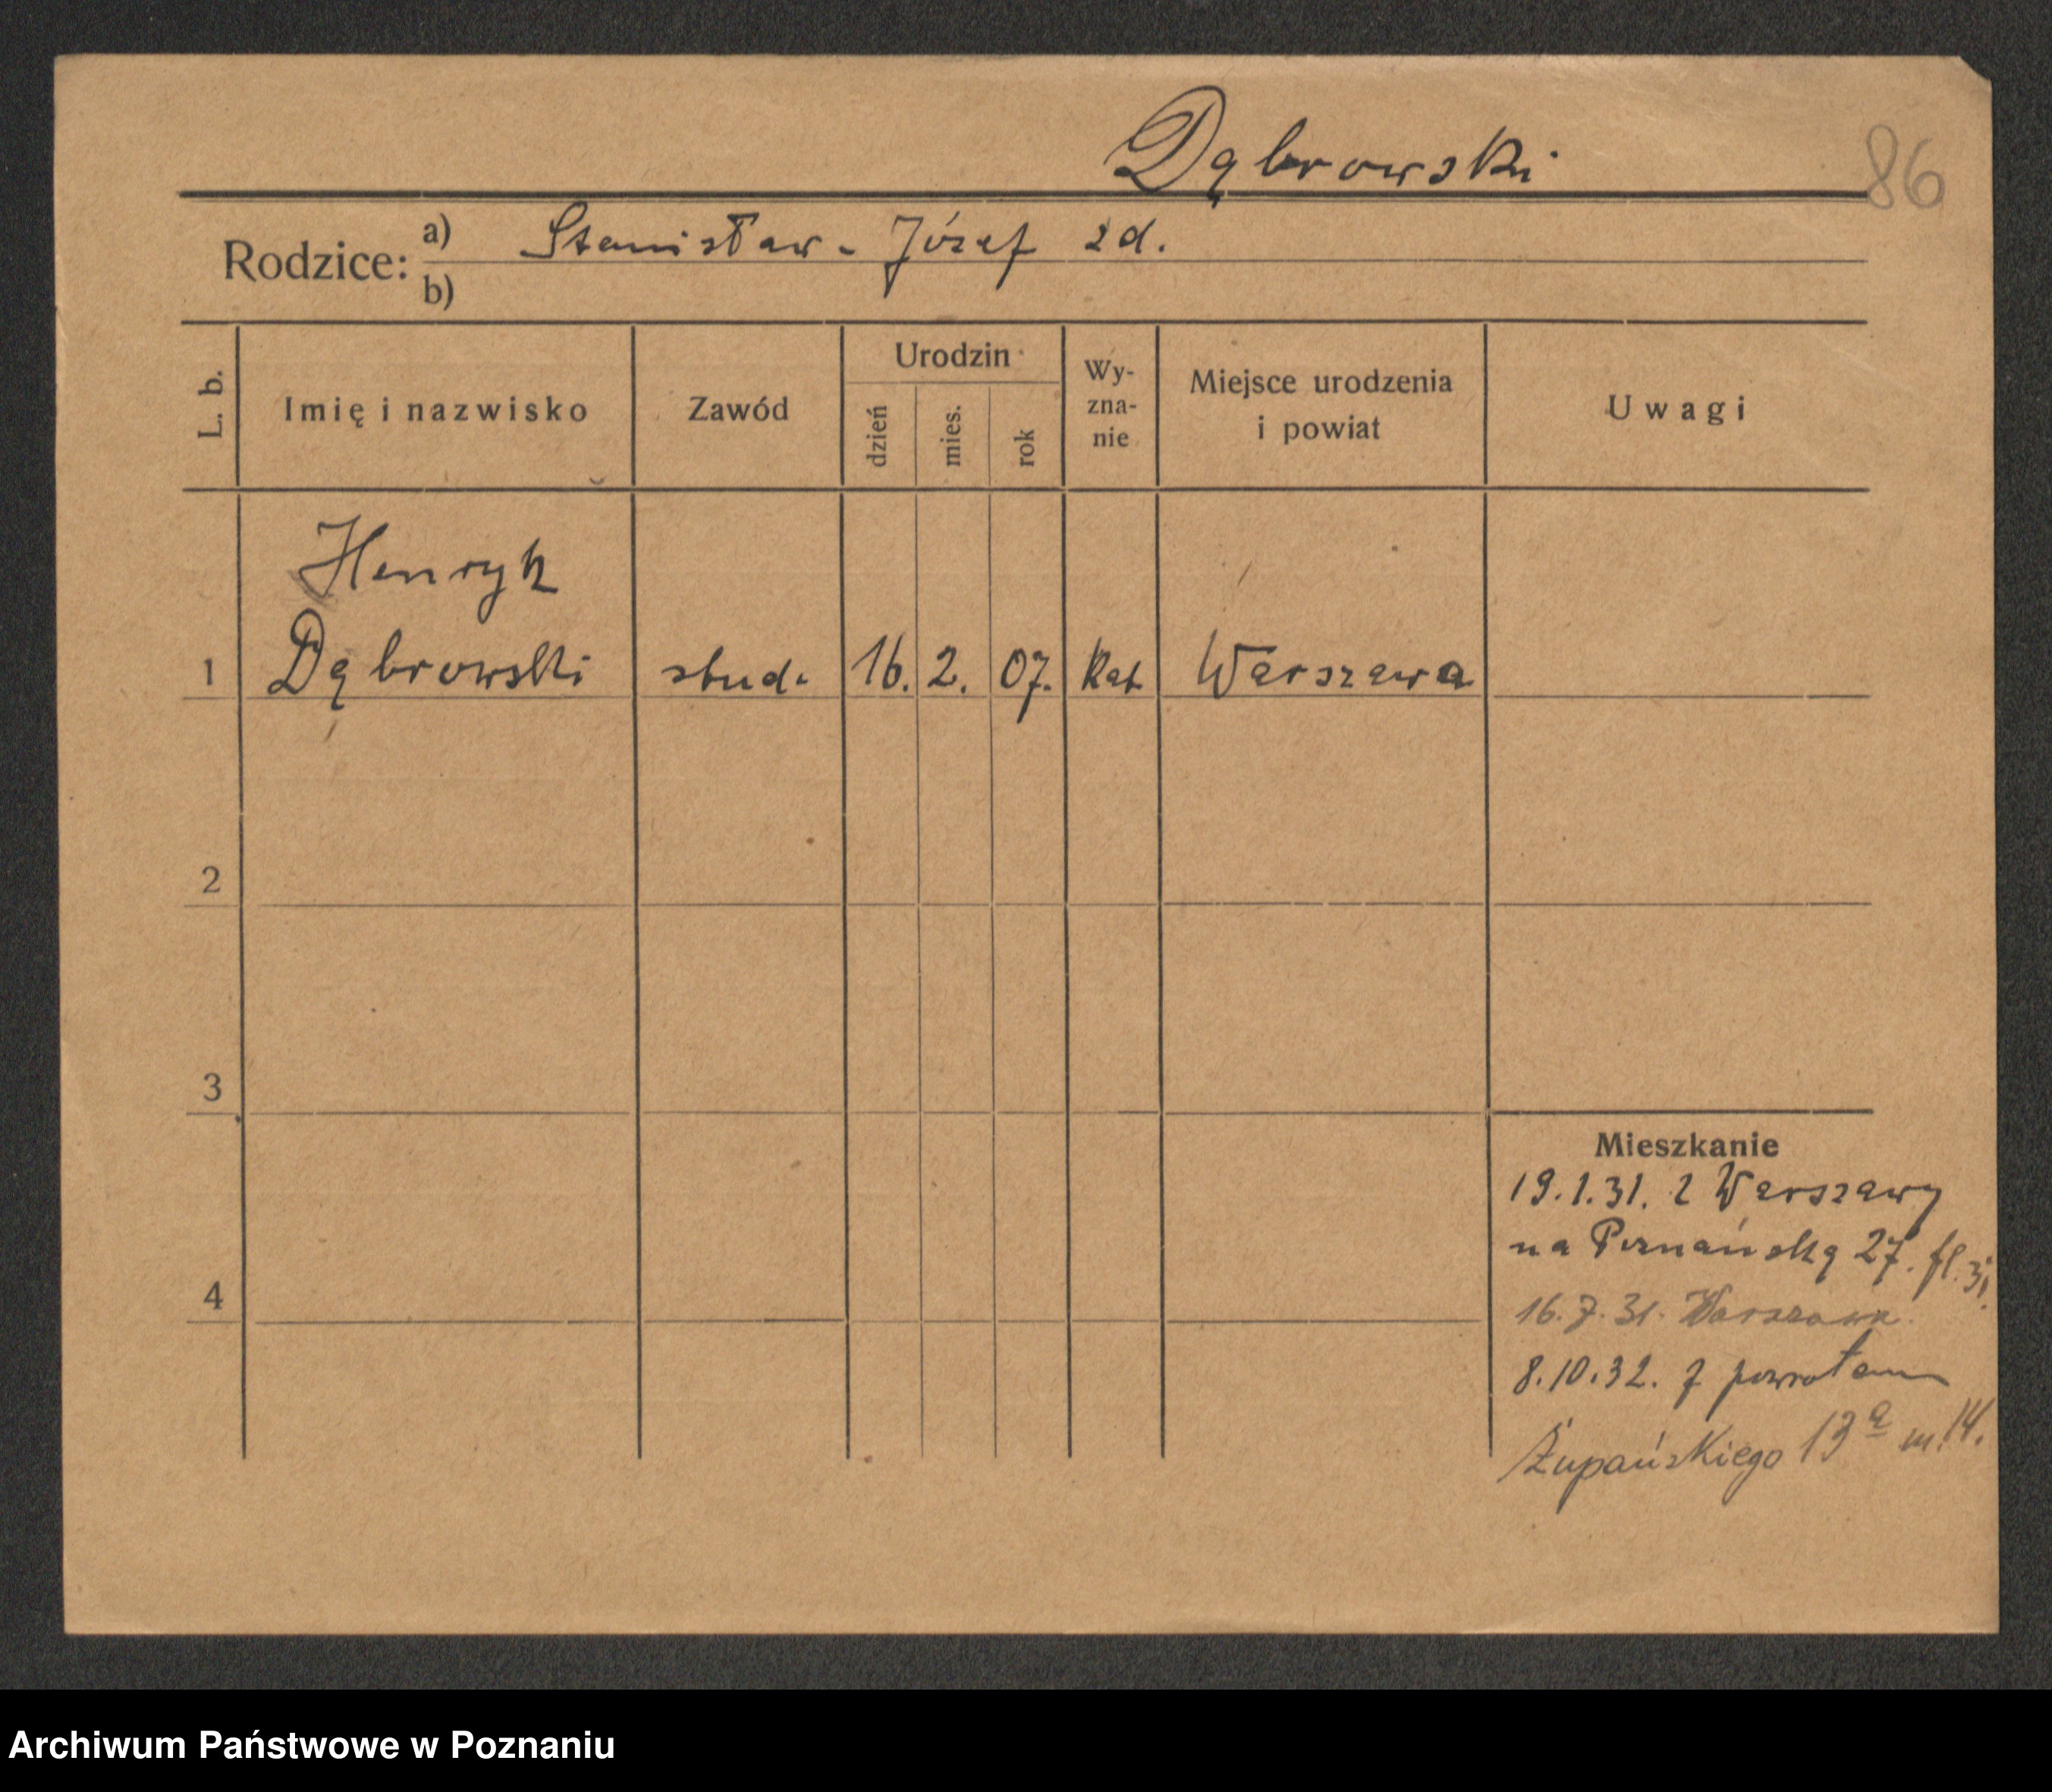 Dąbrowski
86
Rodzice: a) Stanisław - Józef zd.
b)
L. b. Imię i nazwisko Zawód Urodzin dzień mies. rok Wyznanie Miejsce urodzenia i powiat Uwagi
Henryk
1 Dąbrowski stud. 16. 2. 07. Kat Warszawa
2
3
Mieszkanie
19.1.31. z Warszawy
na Poznańską 27. fl. 3.
4
16.7.31. Warszawa.
8.10.32. z powrotem
Żupańskiego 13a m. 14.
Archiwum Państwowe w Poznaniu